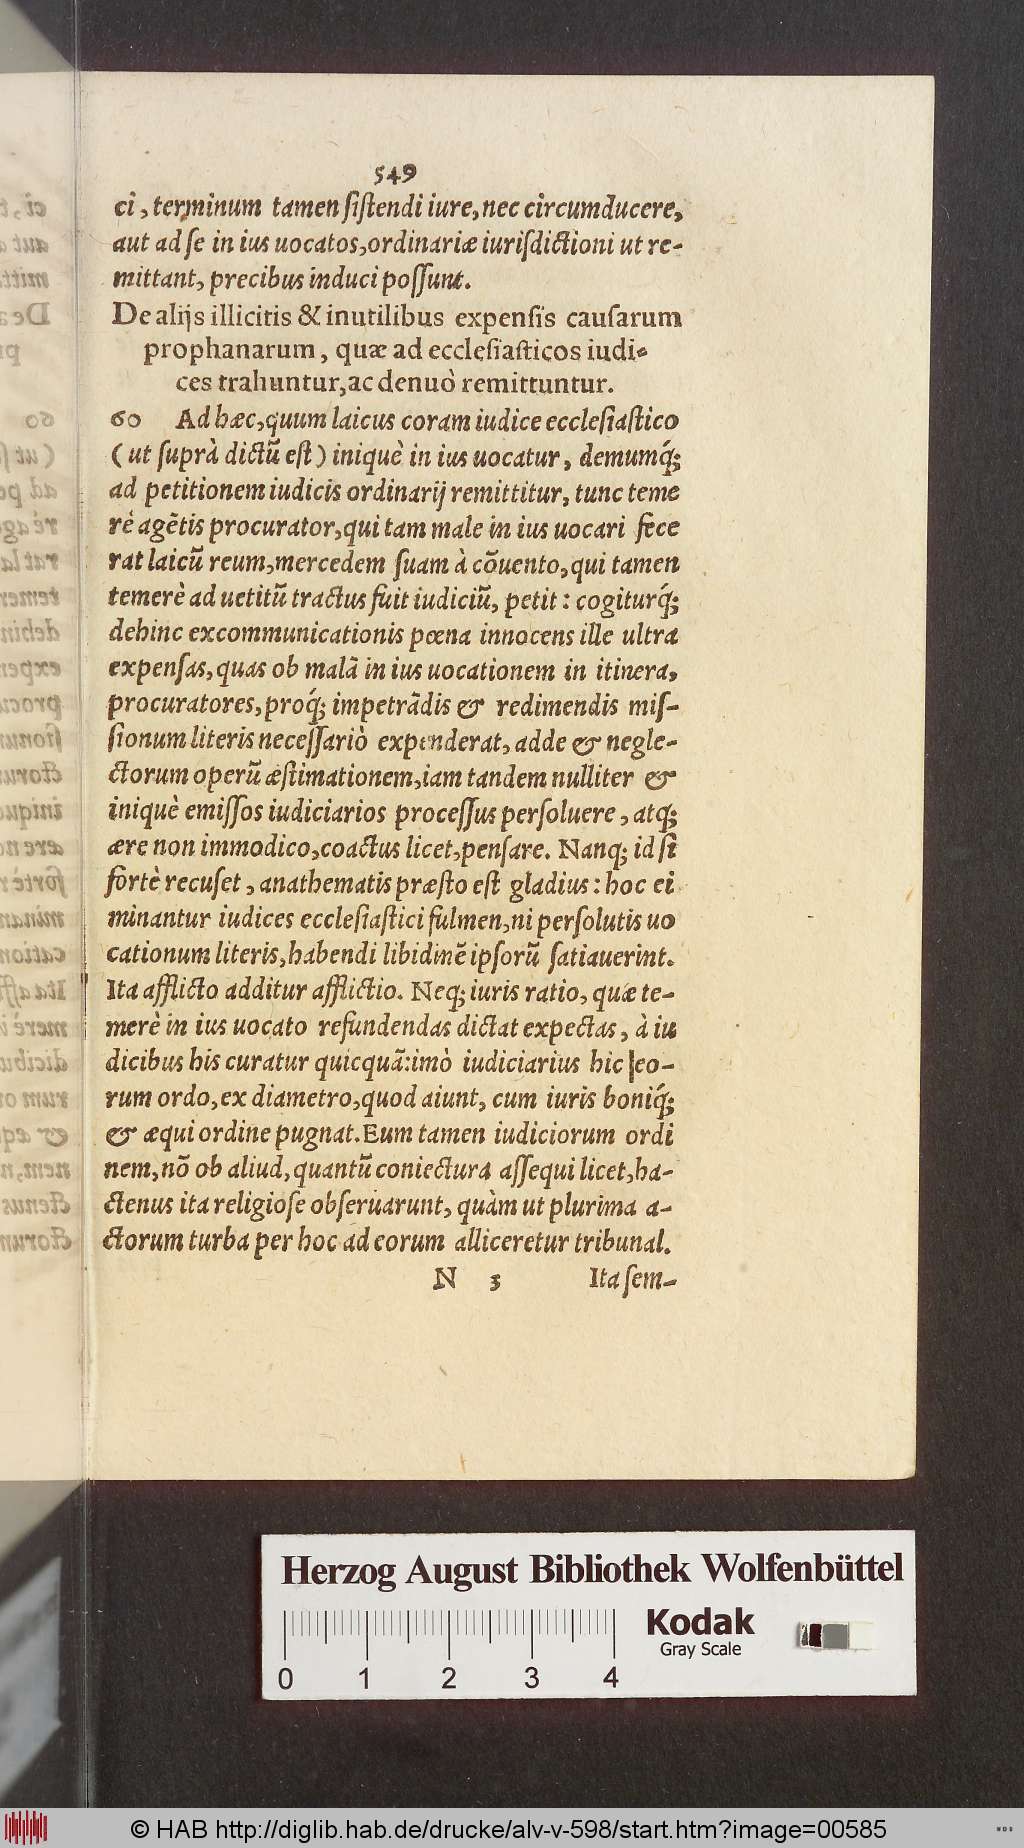 549
ci, terminum tamen ſiſtendi iure, nec circumducere,
aut ad ſe in ius uocatos, ordinariæ iuriſdictioni ut re-
mittant, precibus induci poſſunt.
De alijs illicitis & inutilibus expenſis cauſarum
prophanarum, quæ ad eccleſiaſticos iudi-
ces trahuntur, ac denuò remittuntur.
60 Ad hæc, quum laicus coram iudice eccleſiaſtico
(ut ſuprà dictū eſt) iniquè in ius uocatur, demumq́;
ad petitionem iudicis ordinarij remittitur, tunc teme
rè agētis procurator, qui tam male in ius uocari fece
rat laicū reum, mercedem ſuam à cōuento, qui tamen
temerè ad uetitū tractus fuit iudiciū, petit: cogiturq́;
dehinc excommunicationis pœna innocens ille ultra
expenſas, quas ob malā in ius uocationem in itinera,
procuratores, proq́; impetrādis & redimendis miſ-
ſionum literis neceſſariò expenderat, adde & negle-
ctorum operū æſtimationem, iam tandem nulliter &
iniquè emiſſos iudiciarios proceſſus perſoluere, atq;
ære non immodico, coactus licet, penſare. Nanq; id ſi
fortè recuſet, anathematis præſto eſt gladius: hoc ei
minantur iudices eccleſiaſtici fulmen, ni perſolutis uo
cationum literis, habendi libidinē ipſorū ſatiauerint.
Ita afflicto additur afflictio. Neq; iuris ratio, quæ te-
merè in ius uocato refundendas dictat expectas, à iu
dicibus his curatur quicquā: imò iudiciarius hic eo-
rum ordo, ex diametro, quod aiunt, cum iuris boniq́;
& æqui ordine pugnat. Eum tamen iudiciorum ordi
nem, nō ob aliud, quantū coniectura aſſequi licet, ha-
ctenus ita religioſe obſeruarunt, quàm ut plurima a-
ctorum turba per hoc ad eorum alliceretur tribunal.
N 3 Ita ſem-
Herzog August Bibliothek Wolfenbüttel
Kodak
Gray Scale
0 1 2 3 4
© HAB http://diglib.hab.de/drucke/alv-v-598/start.htm?image=00585